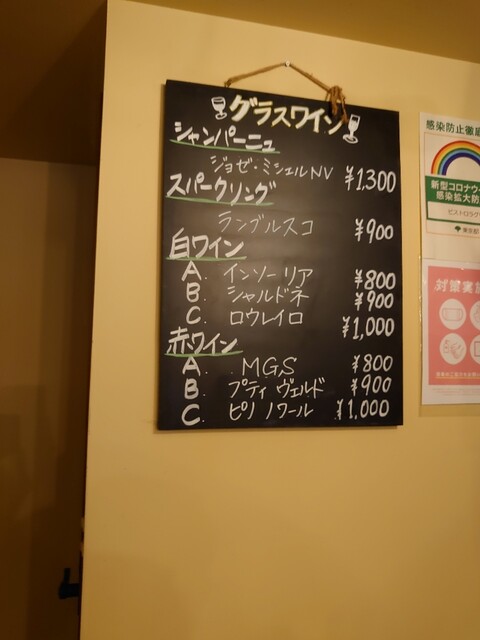 グラスワイン
シャンパーニュ
ジョゼ・ミシェルNV ¥1,300
スパークリング
ランブルスコ ¥900
白ワイン
A. インソーリア ¥800
B. シャルドネ ¥900
C. ロウレイロ ¥1,000
赤ワイン
A. MGS ¥800
B. プティ ヴェルド ¥900
C. ピノ ノワール ¥1,000
感染防止徹底
新型コロナウ
感染拡大防
ビストロラ
東京都
対策実施